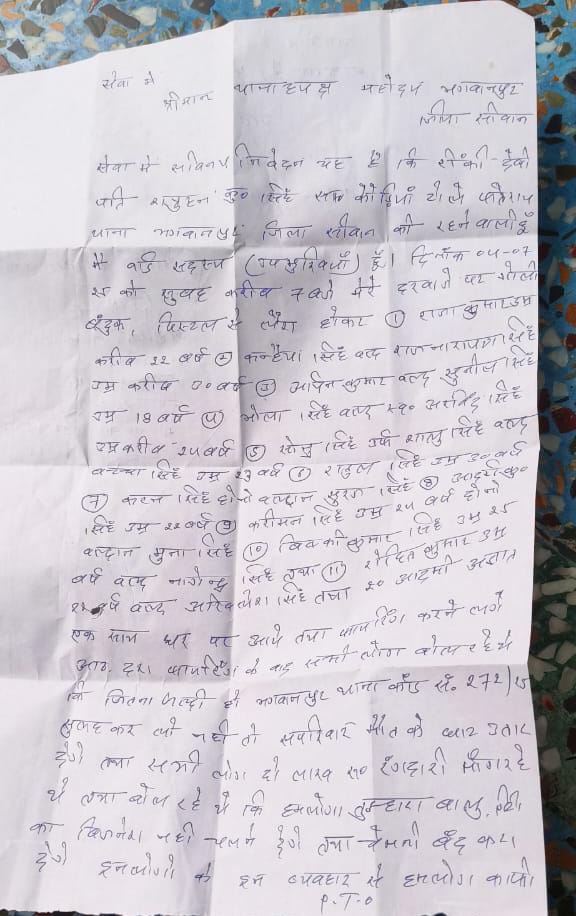 सेवा में
श्रीमान थानाध्यक्ष महोदय भगवानपुर
जिला सीवान
सेवा में सविनय निवेदन यह है कि रिंकी देवी
पति शत्रुहन कु० सिंह सा० कौड़ियाँ टोले
थाना भगवानपुर जिला सीवान की रहने वाली हूँ
मैं वार्ड सदस्य (उपमुखिया) हूँ। दिनांक 04-07
25 को सुबह करीब 7 बजे मेरे दरवाजे पर गोली
बंदुक, पिस्टल से लैश होकर (1) राजा कुमार उम्र
करीब 22 वर्ष (2) कन्हैया सिंह वल्द राजनारायण सिंह
उम्र करीब वर्ष (3) कुमार वल्द सुनील सिंह
उम्र 18 वर्ष (4) भोला सिंह वल्द स्व० अरविंद सिंह
उम्र करीब 24 वर्ष (5) सोनु सिंह उर्फ शालु सिंह वल्द
बच्चा सिंह उम्र 23 वर्ष (6) राहुल सिंह उम्र 30 वर्ष
(7) सिंह दोनो वल्दान सुरज सिंह (8) कु०
सिंह उम्र 22 वर्ष (9) करीमन सिंह उम्र 24 वर्ष दोनो
वल्दान मुना सिंह (10) विक्की कुमार सिंह उम्र 25
वर्ष वल्द नागेन्द्र सिंह तथा (11) रोहित कुमार उम्र
22 वर्ष वल्द अखिलेश सिंह तथा 20 आदमी अज्ञात
एक साथ घर पर आये तथा फायरिंग करने लगे
आठ, दश फायरिंग के बाद सभी लोग बोल रहे थे
कि जितना जल्दी हो भगवानपुर थाना कांड सं. 272/25
सुलह कर लो नही तो सपरिवार मौत के घाट उतार
देंगे तथा सभी लोग दो लाख रु० रंगदारी माँग रहे
थे तथा बोल रहे थे कि हमलोग तुम्हारा बालु,
का बिजनेश नही चलने देंगे तथा चिमनी बंद करा
देंगे इनलोगो के इन व्यवहार से हमलोग काफी
P.T.O